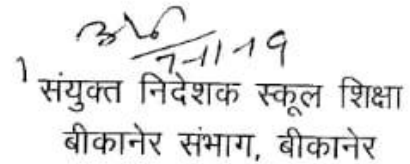 7-11-19
संयुक्त निदेशक स्कूल शिक्षा
बीकानेर संभाग, बीकानेर